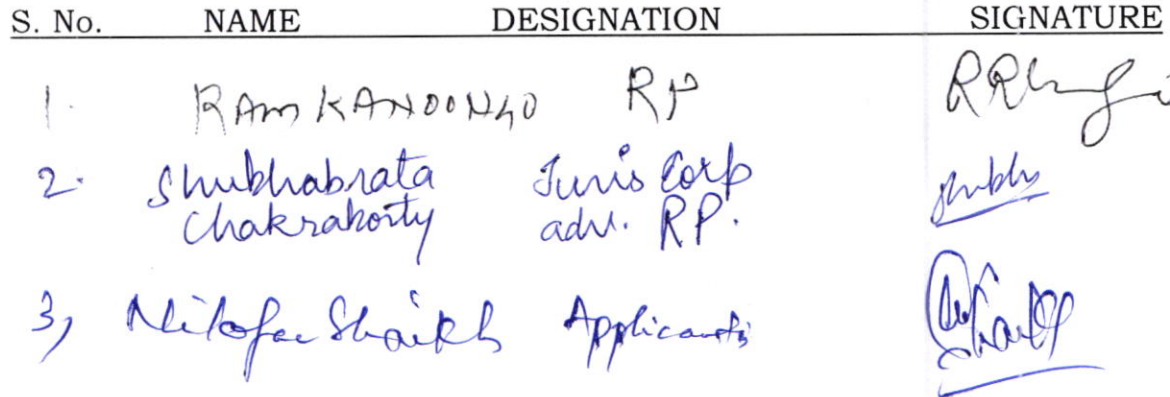 S. No. NAME DESIGNATION SIGNATURE
1. RAM KANOONGO RP
2. Shubhabrata Juris Corp Shubh
Chakraborty adv. RP.
3, Nilofar Shaikh Applicants